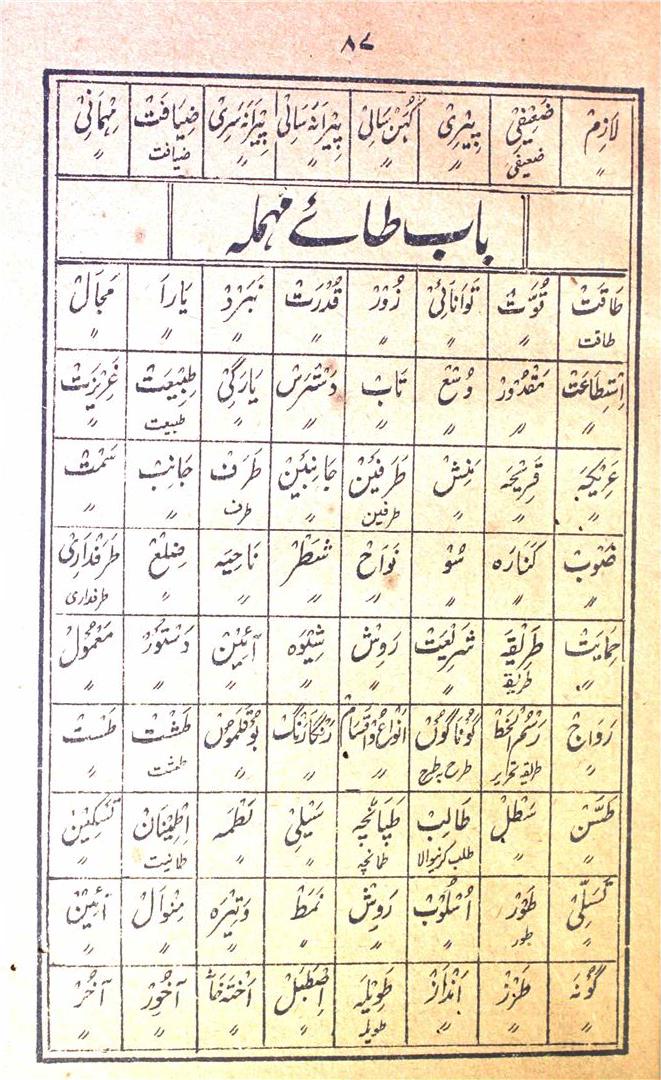 ۸۷
لَازِمْ ضَعِیْفِیْ پِیْرِیْ کُہَنْ سَالِیْ پِیْرَانَہ سَالِیْ پِیْرَانَہ سَرِیْ ضِیَافَتْ مِہْمَانِیْ
〃 ضعیفی 〃 〃 〃 〃 ضیافت 〃
باب طائے مہملہ
طَاقَتْ قُوَّتْ تَوَانَائِیْ زُوْر قُدْرَتْ نَبَرْدْ یَارَا مَجَالْ
طاقت 〃 〃 〃 〃 〃 〃 〃
اِسْتِطَاعَتْ مَقْدُوْر وُسْعْ تَابْ دَسْتَرَسْ یَارَگِیْ طَبِیْعَتْ غَرِیْزَتْ
〃 〃 〃 〃 〃 〃 طبیعت 〃
عَرِیْکَہ قَرِیْحَہ مَنِشْ طَرَفَیْنْ جَانِبَیْنْ طَرَفْ جَانِبْ سَمْتْ
〃 〃 〃 طرفین 〃 طرف 〃 〃
صَوْبْ کَنَارَہ سُوْ نَوَاحْ شَطْرْ نَاحِیَہ ضِلْعْ طَرَفْدَارِیْ
〃 〃 〃 〃 〃 〃 〃 طرفداری
حِمَایَتْ طَرِیْقَہ شَرِیْعَتْ رَوِشْ شِیْوَہ آئِیْنْ دَسْتُوْرْ مَعْمُوْلْ
〃 طریقہ 〃 〃 〃 〃 〃 〃
رَوَاجْ رَسْمُ الْخَطْ گُوْنَاگُوْنْ اَنْوَاعْ وَاَقْسَامْ رَنْگَارَنْگْ بُوْقَلَمُوْنْ طَشْتْ طَسْتْ
〃 طریقہ تحریر طرح بہ طرح 〃 〃 〃 طشت 〃
طَسَّنْ سَطْلْ طَالِبْ طَپَانْچَہ سَیْلِیْ لَطْمَہ اِطْمِیْنَانْ تَسْکِیْنْ
〃 〃 طلب کرنیوالا طمانچہ 〃 〃 طمانیت 〃
تَسَلِّیْ طَوْرْ اُسْلُوْبْ رَوِشْ نَمَطْ وَتِیْرَہ مِنْوَالْ آئِیْنْ
〃 طور 〃 〃 〃 〃 〃 〃
گُوْنَہ طَرْزْ اَنْدَازْ طَوِیْلَہ اِصْطَبَلْ اَخْتَہ خَانَہ آخُوْرْ آخُرْ
〃 〃 〃 طویلہ 〃 〃 〃 〃